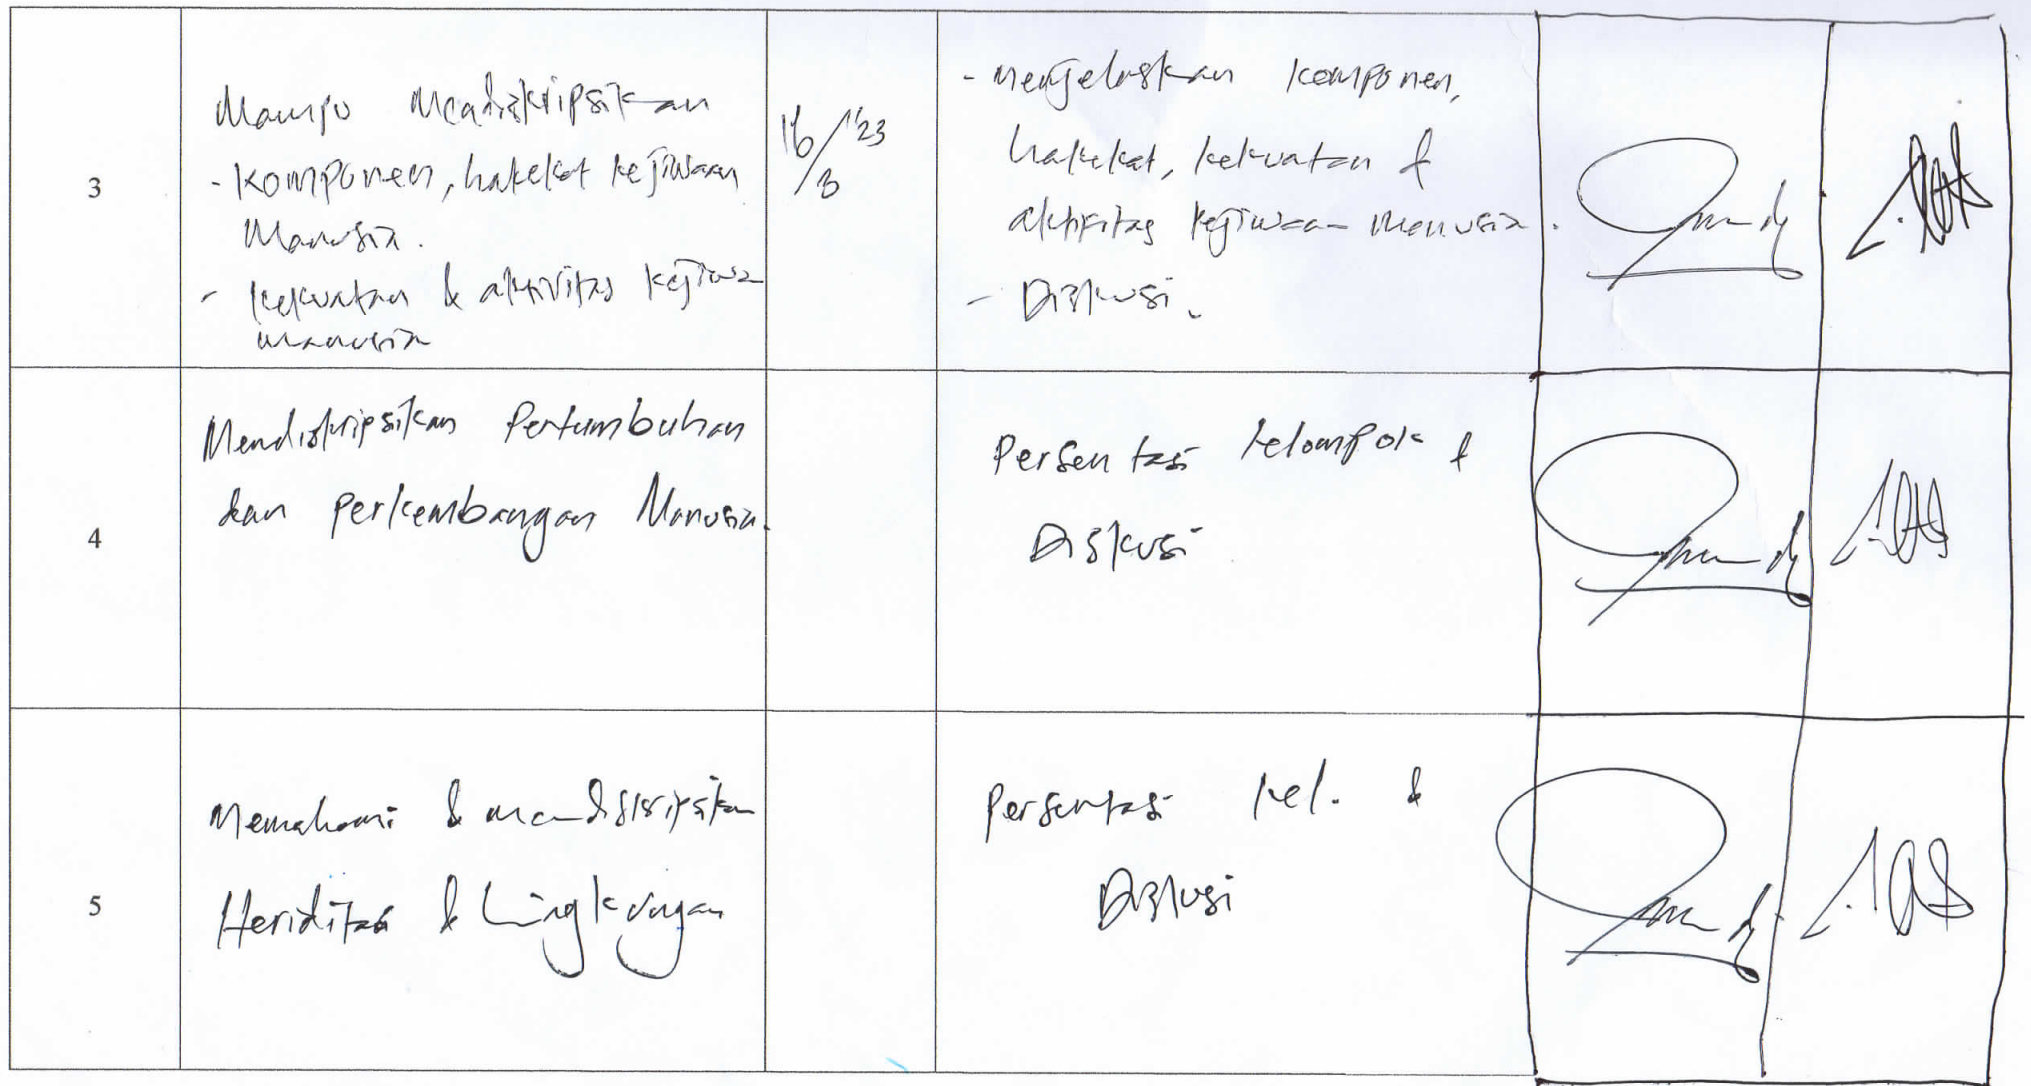 3
Mampu Mendiskripsikan
- Komponen, hakekat kejiwaan
Manusia.
- kekuatan & aktivitas kejiwa
manusia
16/3 '23
- Menjelaskan komponen,
hakekat, kekuatan &
aktifitas kejiwaan manusia.
- Diskusi.
4
Mendiskripsikan Pertumbuhan
dan perkembangan Manusia.
Persentasi kelompok &
Diskusi
5
Memahami & mendiskripsikan
Heriditas & Lingkungan
Persentasi kel. &
Diskusi